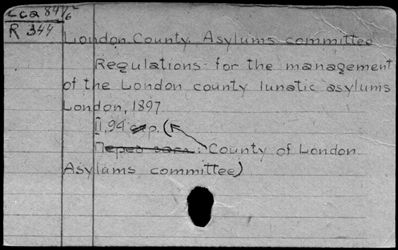 Cca 847/6
R 344
London County. Asylums committee
Regulations for the management
of the London county lunatic asylums
London, 1897.
II, 94 p. (
Перед загл.: County of London
Asylums committee)